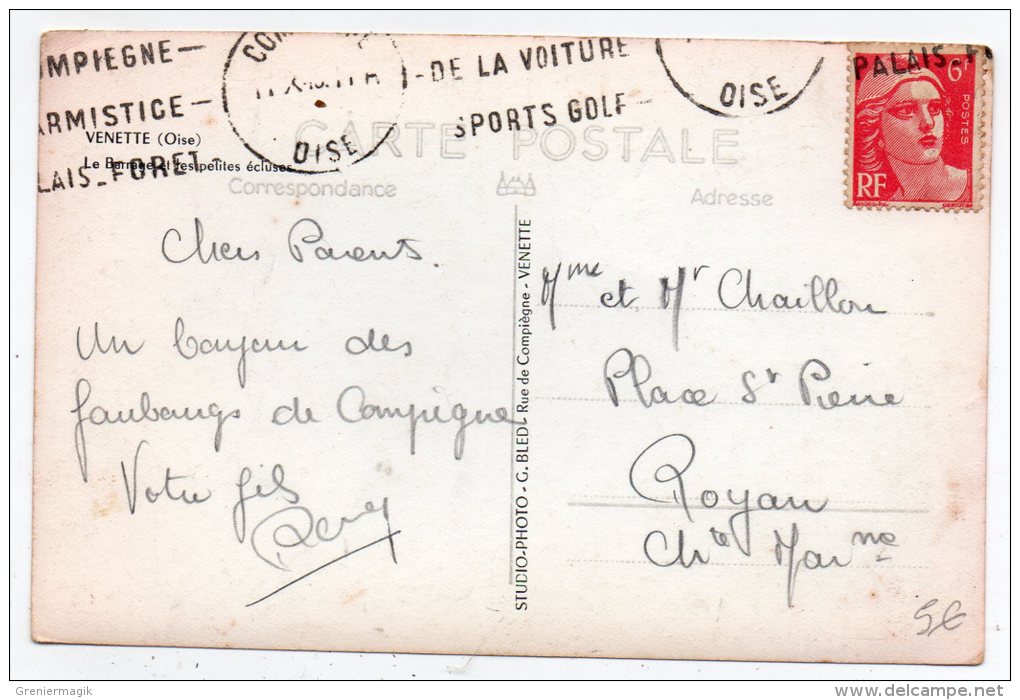 OMPIEGNE—
ARMISTICE—
LAIS_FORET-
COMPIEGNE
OISE
-DE LA VOITURE
SPORTS GOLF—
OISE
PALAIS-F
6F
POSTES
RF
VENETTE (Oise)
Le Barrage et les petites écluses
CARTE POSTALE
Correspondance
Adresse
Chers Parents.
Un
des
faubourgs de Compiègne
Votre fils
STUDIO-PHOTO - G. BLED - Rue de Compiègne - VENETTE
Mme et Mr Chaillou
Place St Pierre
Royan
Chte Marne
5€
Greniermagik
www.delcampe.net